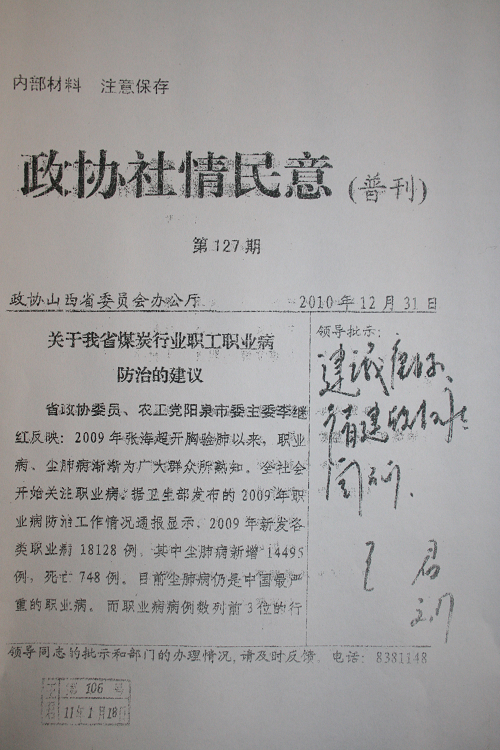 内部材料 注意保存
政协社情民意(普刊)
第127期
政协山西省委员会办公厅 2010年12月31日
关于我省煤炭行业职工职业病
防治的建议
省政协委员、农工党阳泉市委主委李继
红反映：2009年张海超开胸验肺以来，职业
病、尘肺病渐渐为广大群众所熟知。全社会
开始关注职业病。据卫生部发布的2009年职
业病防治工作情况通报显示，2009年新发各
类职业病18128例，其中尘肺病新增14495
例，死亡748例。目前尘肺病仍是中国最严
重的职业病。而职业病病例数列前3位的行
领导批示：
王君
领导同志的批示和部门的办理情况，请及时反馈。电话：8381148
106号
11年1月18日